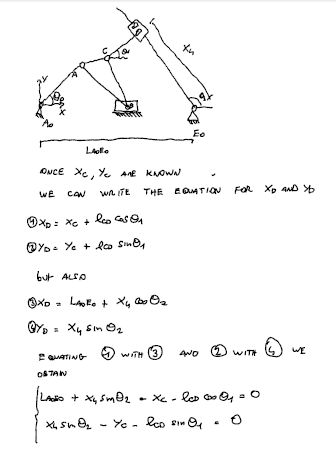 D
C
θ1
X4
A
Y
θ0
X
B
θ2
X
A0
E0
LA0E0
ONCE XC, YC ARE KNOWN
WE CAN WRITE THE EQUATION FOR XD AND YD
① XD = XC + lCD cosθ1
② YD = YC + lCD sinθ1
but ALSO
③ XD = LA0E0 + X4 cosθ2
④ YD = X4 sinθ2
EQUATING ① WITH ③ AND ② WITH ④ WE
OBTAIN
LA0E0 + X4 sinθ2 - XC - lCD cosθ1 = 0
X4 sinθ2 - YC - lCD sinθ1 = 0